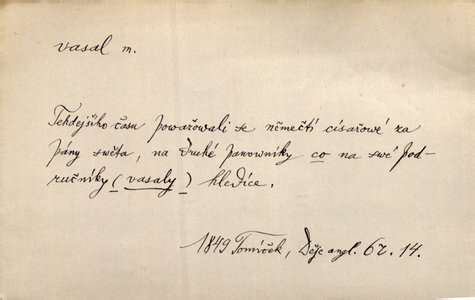 vasal m.
Tehdejšího času powažowali se němečtí císařowé za
pány swěta, na druhé panowníky co na swé pod-
ručníky (vasaly) hledíce.
1849 Tomíček, Děje angl. 62. 14.